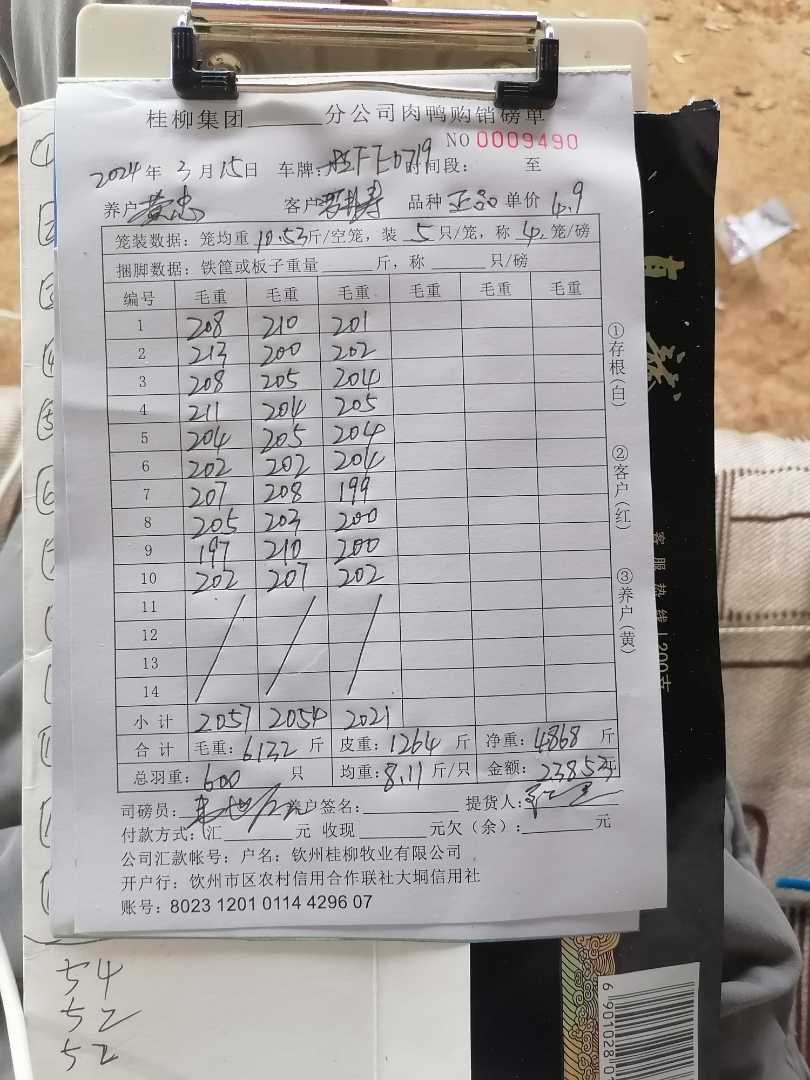 桂柳集团______分公司肉鸭购销磅单
NO 0009490
2024年3月15日 车牌: 0719 时间段: 至
养户 黄忠 客户 品种 正品 单价 4.9
笼装数据：笼均重 10.53 斤/空笼，装 5 只/笼，称 4 笼/磅
捆脚数据：铁筐或板子重量______斤，称______只/磅
编号 毛重 毛重 毛重 毛重 毛重 毛重
1 208 210 201
2 213 200 202
3 208 205 204
4 211 204 205
5 204 205 204
6 202 202 204
7 207 208 199
8 205 203 200
9 197 210 200
10 202 207 202
11
12
13
14
小计 2057 2054 2021
合计 毛重: 6132 斤 皮重: 1264 斤 净重: 4868 斤
总羽重: 600 只 均重: 8.11 斤/只 金额: 23853 元
司磅员: 养户签名:______ 提货人:
付款方式: 汇______元 收现______元欠（余）:______元
公司汇款帐号: 户名: 钦州桂柳牧业有限公司
开户行: 钦州市区农村信用合作联社大垌信用社
账号: 8023 1201 0114 4296 07
①存根(白)
②客户(红)
③养户(黄)
客服热线
54
52
52
6 901028 0